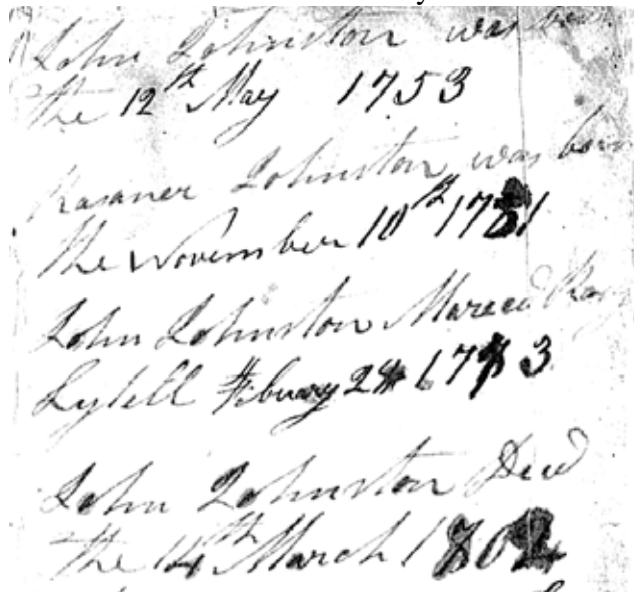 John Johnston was born
the 12th May 1753
Rosaner Johnston was born
the November 10th 1781
John Johnston Mareed
Lytell Fibuary 1783
John Johnston Died
the 14th March 1802